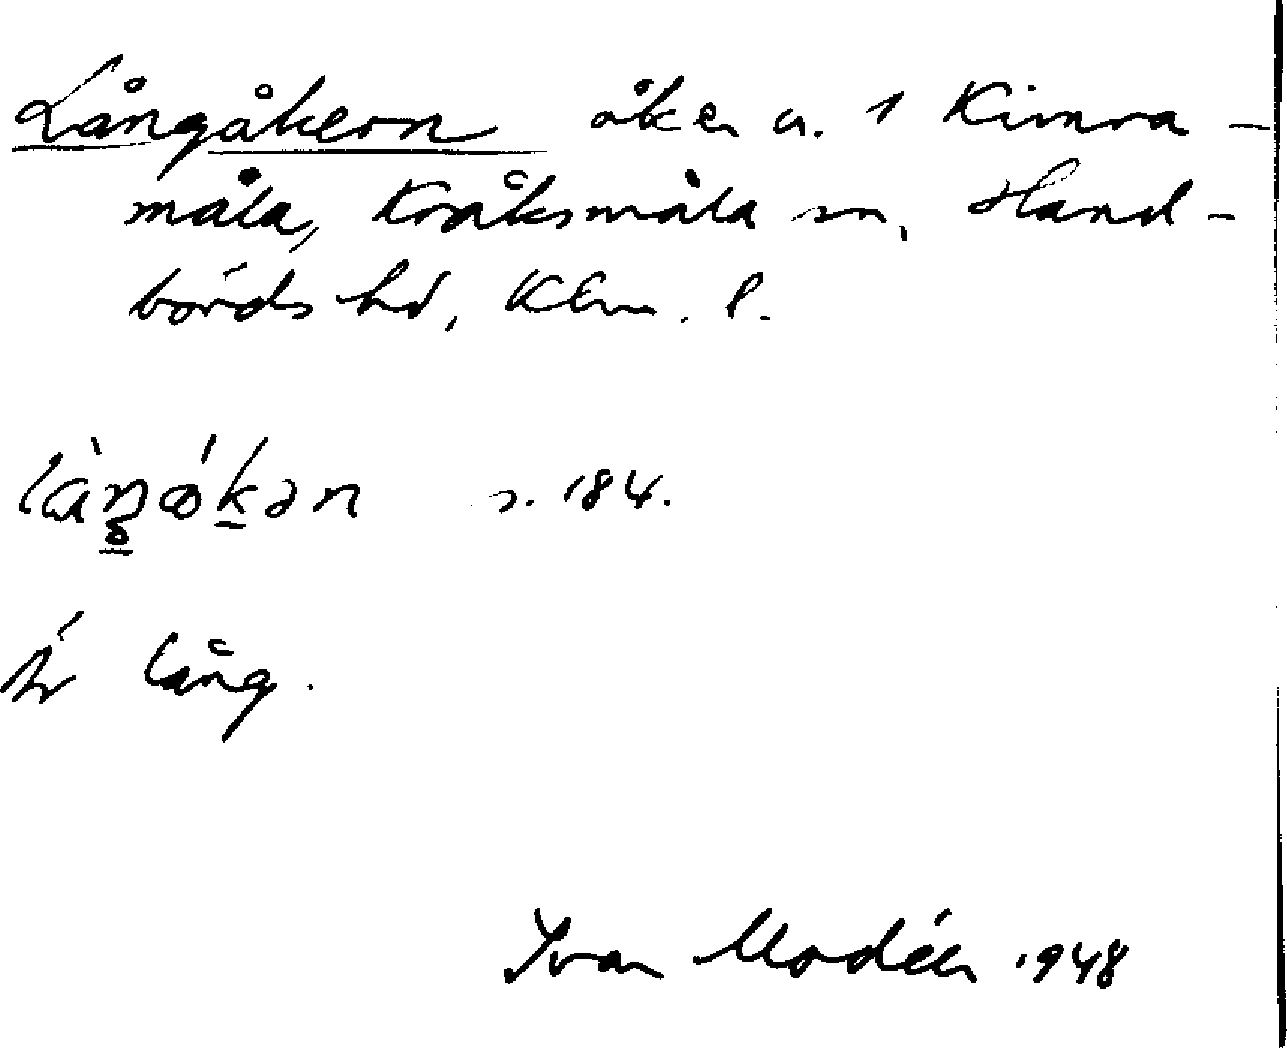 Långåkern åker a. 1 Kimra-
måla, Kråksmåla sn, Hand-
börds hd, Klm. l.
s. 184.
Är lång.
Ivar Modéer 1948